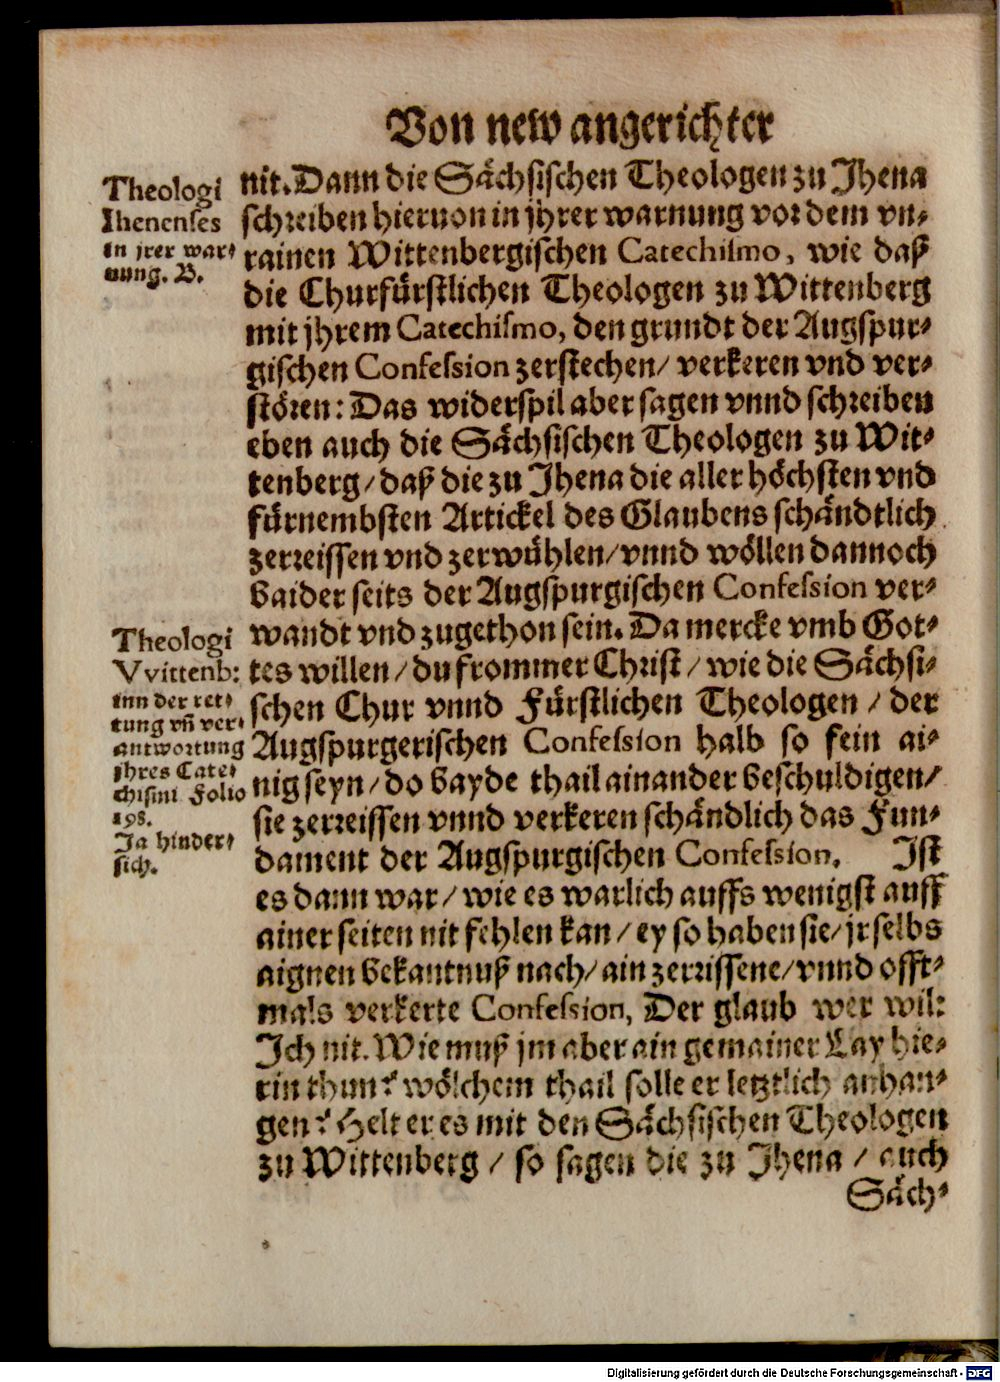 Von new angerichter
Theologi
Ihenenses
in jrer war⸗
nung. B.
nit. Dann die Sächsischen Theologen zu Jhena
schreiben hieruon in jhrer warnung vor dem vn⸗
rainen Wittenbergischen Catechismo, wie daß
die Churfürstlichen Theologen zu Wittenberg
mit jhrem Catechismo, den grundt der Augspur⸗
gischen Confession zerstechen/ verkeren vnd ver⸗
stören: Das widerspil aber sagen vnnd schreiben
eben auch die Sächsischen Theologen zu Wit⸗
tenberg/ daß die zu Jhena die aller höchsten vnd
fürnembsten Artickel des Glaubens schändtlich
zerreissen vnd zerwühlen/ vnnd wöllen dannoch
baider seits der Augspurgischen Confession ver⸗
Theologi
Vvittenb:
inn der ret⸗
tung vñ ver⸗
antwortung
jhres Cate⸗
chismi Folio
198.
Ja hinder⸗
sich.
wandt vnd zugethon sein. Da mercke vmb Got⸗
tes willen/ du frommer Christ/ wie die Sächsi⸗
schen Chur vnnd Fürstlichen Theologen/ der
Augspurgerischen Confession halb so fein ai⸗
nig seyn/ do bayde thail ainander beschuldigen/
sie zerreissen vnnd verkeren schändlich das Fun⸗
dament der Augspurgischen Confession. Ist
es dann war/ wie es warlich auffs wenigst auff
ainer seiten nit fehlen kan/ ey so haben sie/ jr selbs
aignen bekantnuß nach/ ain zerrissene/ vnnd offt⸗
mals verkerte Confession, Der glaub wer wil:
Jch nit. Wie muß jm aber ain gemainer Lay hie⸗
rin thun? wölchem thail solle er letztlich anhan⸗
gen? Helt er es mit den Sächsischen Theologen
zu Wittenberg/ so sagen die zu Jhena/ auch
Säch⸗
Digitalisierung gefördert durch die Deutsche Forschungsgemeinschaft - DFG